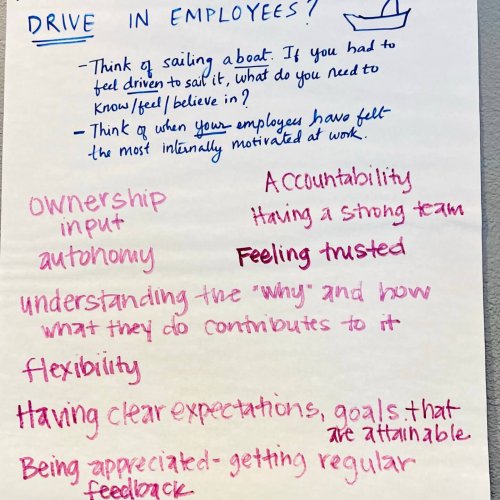 DRIVE IN EMPLOYEES?
- Think of sailing a boat. If you had to
feel driven to sail it, what do you need to
know/feel/believe in?
- Think of when your employees have felt
the most internally motivated at work.
Accountability
ownership
input
Having a strong team
autonomy
Feeling trusted
understanding the "why" and how
what they do contributes to it
flexibility
Having clear expectations, goals that
are attainable
Being appreciated - getting regular
feedback